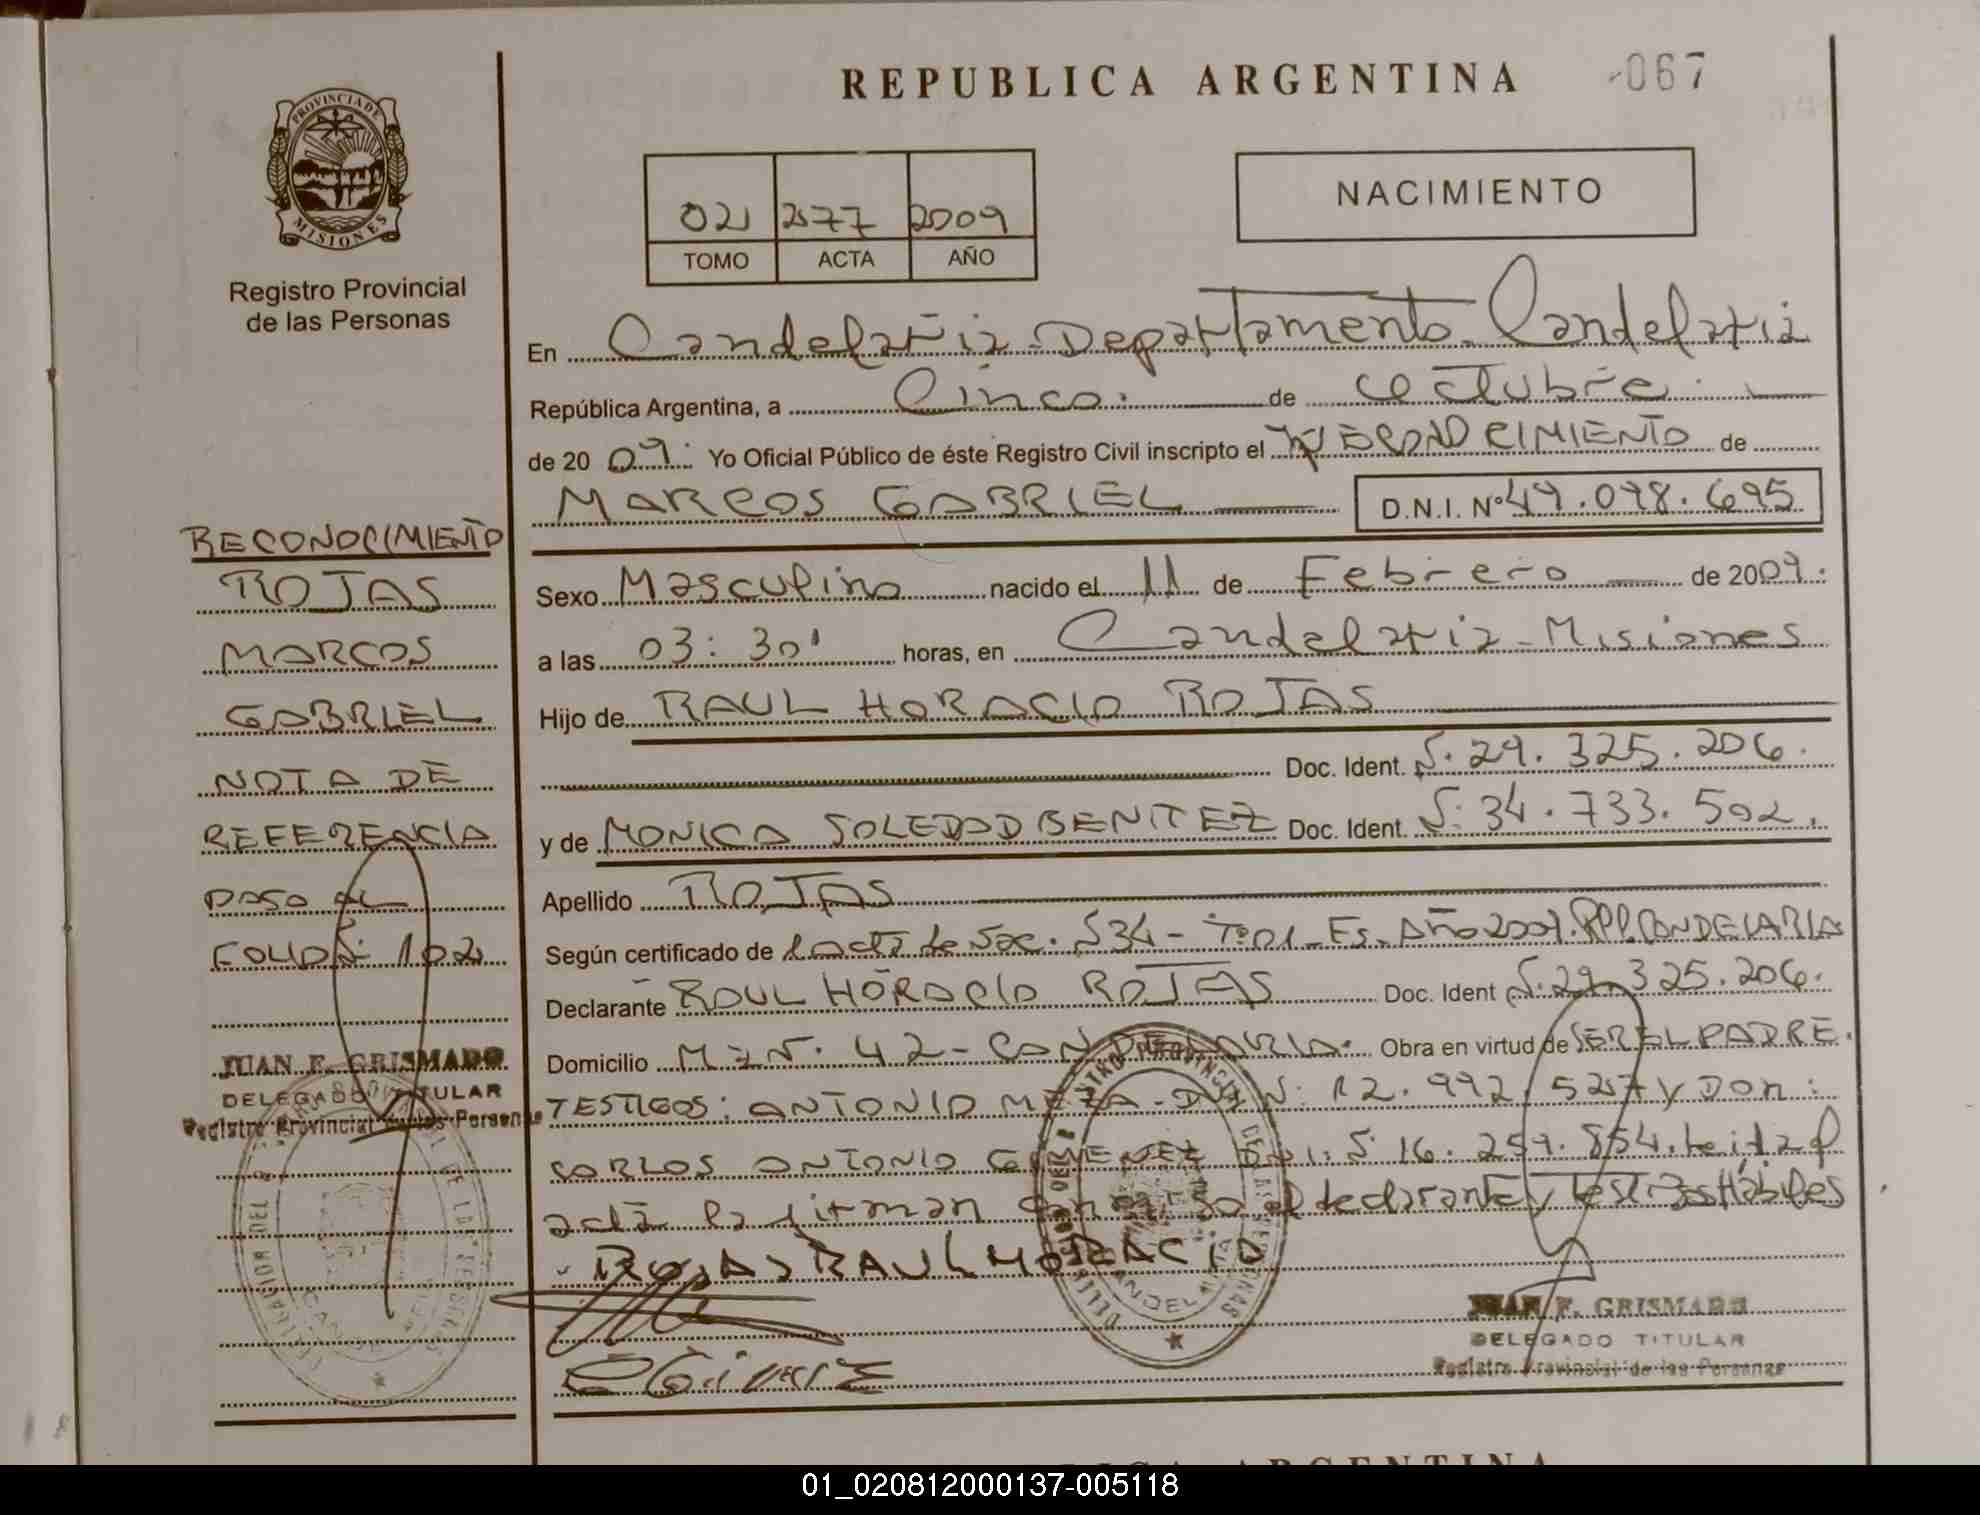 REPUBLICA ARGENTINA
067
PROVINCIA DE MISIONES
Registro Provincial
de las Personas
02 277 2009
TOMO ACTA AÑO
NACIMIENTO
En Candelaria - Departamento - Candelaria
República Argentina, a Cinco. de octubre.
de 2009. Yo Oficial Público de éste Registro Civil inscripto el RECONOCIMIENTO de
MARCOS GABRIEL D.N.I. Nº 49.098.695
Sexo Masculino nacido el 11 de Febrero de 2009.
a las 03:30' horas, en Candelaria - Misiones
Hijo de RAUL HORACIO ROJAS
Doc. Ident. N. 29.325.206.
y de MONICA SOLEDAD BENITEZ Doc. Ident. N: 34.733.502.
Apellido ROJAS
Según certificado de acta de Nac. N 34 - Tº 01 - Es. Año 2009. RPP. CANDELARIA
Declarante RAUL HORACIO ROJAS Doc. Ident N. 29.325.206.
Domicilio Mz N. 42 - CANDELARIA. Obra en virtud de SER EL PADRE.
TESTIGOS: ANTONIO MEZA - DNI N: 12.992.527 y DON:
CARLOS ANTONIO GIMENEZ DNI: N: 16.259.854. Leida el
acta la firman conmigo el declarante y Testigos Hábiles
ROJAS RAUL HORACIO
JUAN F. GRISMADO
DELEGADO TITULAR
Registro Provincial de las Personas
RECONOCIMIENTO
ROJAS
MARCOS
GABRIEL
NOTA DE
REFERENCIA
PASA AL
FOLIO N: 102
JUAN F. GRISMADO
DELEGADO TITULAR
Registro Provincial de las Personas
01_020812000137-005118